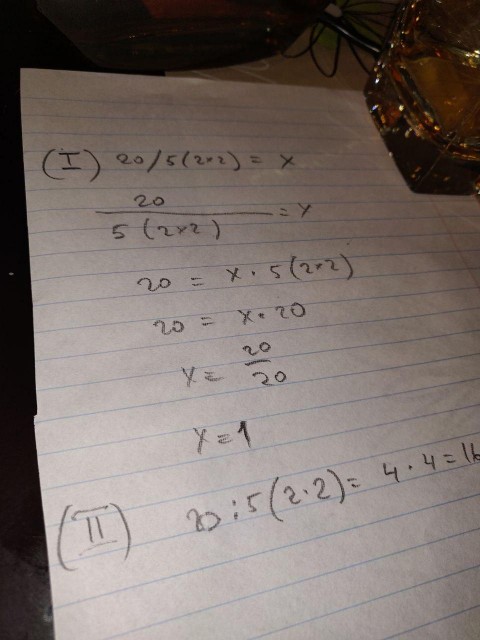 (I) 20/5(2×2) = x
20
5 (2×2) = x
20 = x · 5(2×2)
20 = x · 20
x = 20
20
x = 1
(II) 20 : 5(2·2) = 4 · 4 = 16